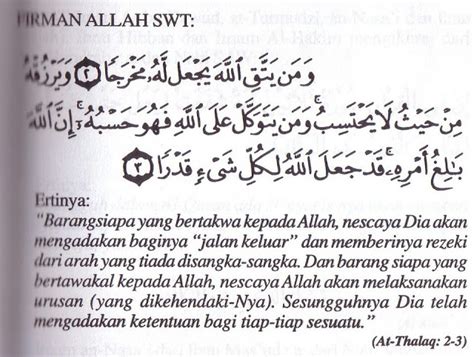 FIRMAN ALLAH SWT:
وَمَن يَتَّقِ ٱللَّهَ يَجْعَل لَّهُۥ مَخْرَجًا ٢ وَيَرْزُقْهُ
مِنْ حَيْثُ لَا يَحْتَسِبُ ۚ وَمَن يَتَوَكَّلْ عَلَى ٱللَّهِ فَهُوَ حَسْبُهُۥٓ ۚ إِنَّ ٱللَّهَ
بَٰلِغُ أَمْرِهِۦ ۚ قَدْ جَعَلَ ٱللَّهُ لِكُلِّ شَىْءٍ قَدْرًا ٣
Ertinya:
"Barangsiapa yang bertakwa kepada Allah, nescaya Dia akan
mengadakan baginya "jalan keluar" dan memberinya rezeki
dari arah yang tiada disangka-sangka. Dan barang siapa yang
bertawakal kepada Allah, nescaya Allah akan melaksanakan
urusan (yang dikehendaki-Nya). Sesungguhnya Dia telah
mengadakan ketentuan bagi tiap-tiap sesuatu."
(At-Thalaq: 2-3)